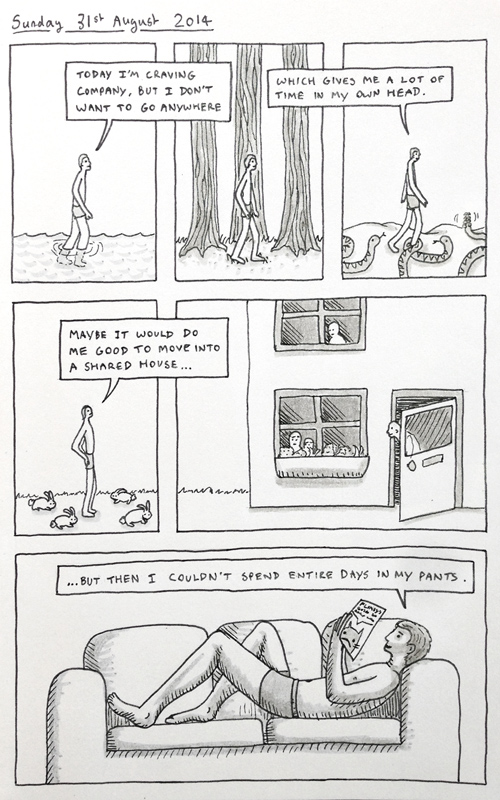 Sunday 31st August 2014
TODAY I'M CRAVING
COMPANY, BUT I DON'T
WANT TO GO ANYWHERE
WHICH GIVES ME A LOT OF
TIME IN MY OWN HEAD.
MAYBE IT WOULD DO
ME GOOD TO MOVE INTO
A SHARED HOUSE...
...BUT THEN I COULDN'T SPEND ENTIRE DAYS IN MY PANTS.